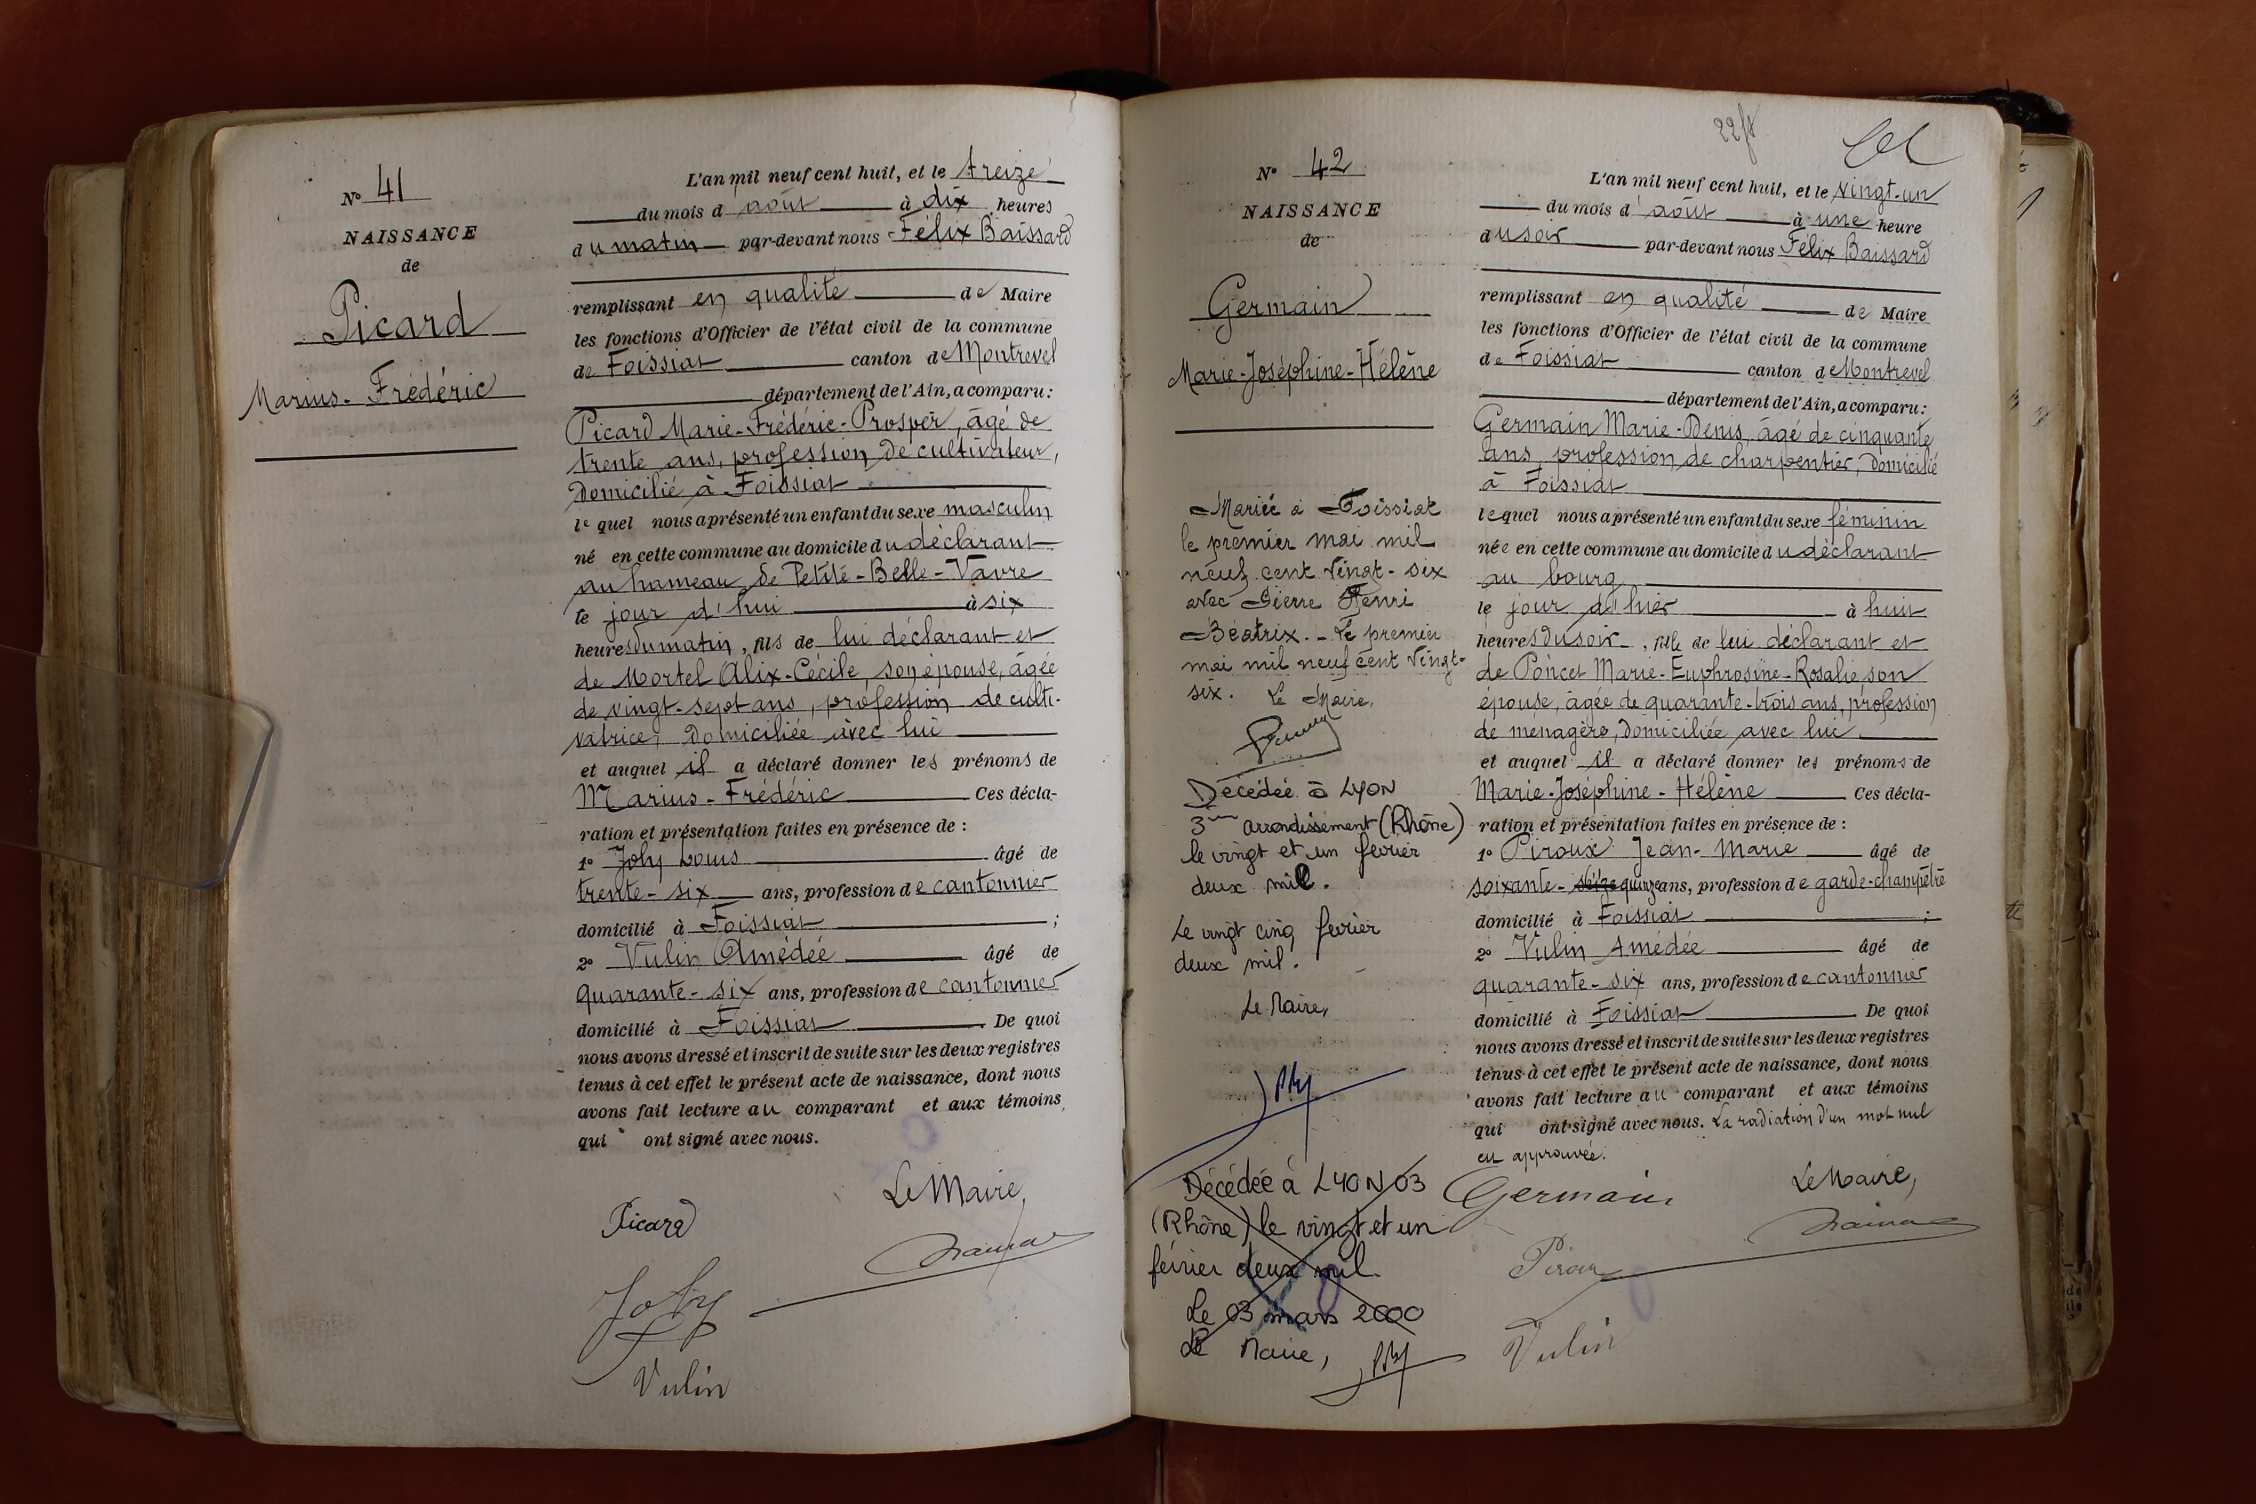 N° 41
NAISSANCE
de
Picard
Marius-Frédéric
L'an mil neuf cent huit, et le treize
du mois d'août à dix heures
du matin par-devant nous Félix Baissard
remplissant en qualité de Maire
les fonctions d'Officier de l'état civil de la commune
de Foissiat canton de Montrevel
département de l'Ain, a comparu :
Picard Marie-Frédéric-Prosper, âgé de
trente ans, profession de cultivateur,
domicilié à Foissiat
lequel nous a présenté un enfant du sexe masculin
né en cette commune au domicile du déclarant
au hameau de Petite-Belle-Vavre
le jour d'hui à six
heures du matin, fils de lui déclarant et
de Mortel Alix-Cécile, son épouse, âgée
de vingt-sept ans, profession de culti-
vatrice, domiciliée avec lui
et auquel il a déclaré donner les prénoms de
Marius-Frédéric Ces décla-
ration et présentation faites en présence de :
1° Joly Louis âgé de
trente-six ans, profession de cantonnier
domicilié à Foissiat ;
2° Vulin Amédée âgé de
quarante-six ans, profession de cantonnier
domicilié à Foissiat De quoi
nous avons dressé et inscrit de suite sur les deux registres
tenus à cet effet le présent acte de naissance, dont nous
avons fait lecture au comparant et aux témoins
qui ont signé avec nous.
Le Maire,
Picard
Joly
Vulin
22/8
N° 42
NAISSANCE
de
Germain
Marie-Joséphine-Hélène
Mariée à Foissiat
le premier mai mil
neuf cent vingt-six
avec Pierre Henri
Béatrix. - Le premier
mai mil neuf cent vingt-
six. Le Maire,
Décédée à LYON
3ème arrondissement (Rhône)
le vingt et un février
deux mil.
Le vingt cinq février
deux mil.
Le Maire,
Décédée à LYON 03
(Rhône) le vingt et un
février deux mil.
Le 03 mars 2000
Le Maire,
L'an mil neuf cent huit, et le vingt-un
du mois d'août à une heure
du soir par-devant nous Félix Baissard
remplissant en qualité de Maire
les fonctions d'Officier de l'état civil de la commune
de Foissiat canton de Montrevel
département de l'Ain, a comparu :
Germain Marie-Denis, âgé de cinquante
ans, profession de charpentier, domicilié
à Foissiat
lequel nous a présenté un enfant du sexe féminin
née en cette commune au domicile du déclarant
au bourg
le jour d'hier à huit
heures du soir, fille de lui déclarant et
de Poncet Marie-Euphrosine-Rosalie son
épouse, âgée de quarante-trois ans, profession
de ménagère, domiciliée avec lui
et auquel il a déclaré donner les prénoms de
Marie-Joséphine-Hélène Ces décla-
ration et présentation faites en présence de :
1° Piroux Jean-Marie âgé de
soixante-seize quinze ans, profession de garde-champêtre
domicilié à Foissiat ;
2° Vulin Amédée âgé de
quarante-six ans, profession de cantonnier
domicilié à Foissiat De quoi
nous avons dressé et inscrit de suite sur les deux registres
tenus à cet effet le présent acte de naissance, dont nous
avons fait lecture au comparant et aux témoins
qui ont signé avec nous. La radiation d'un mot nul
est approuvée.
Germain Le Maire,
Vulin